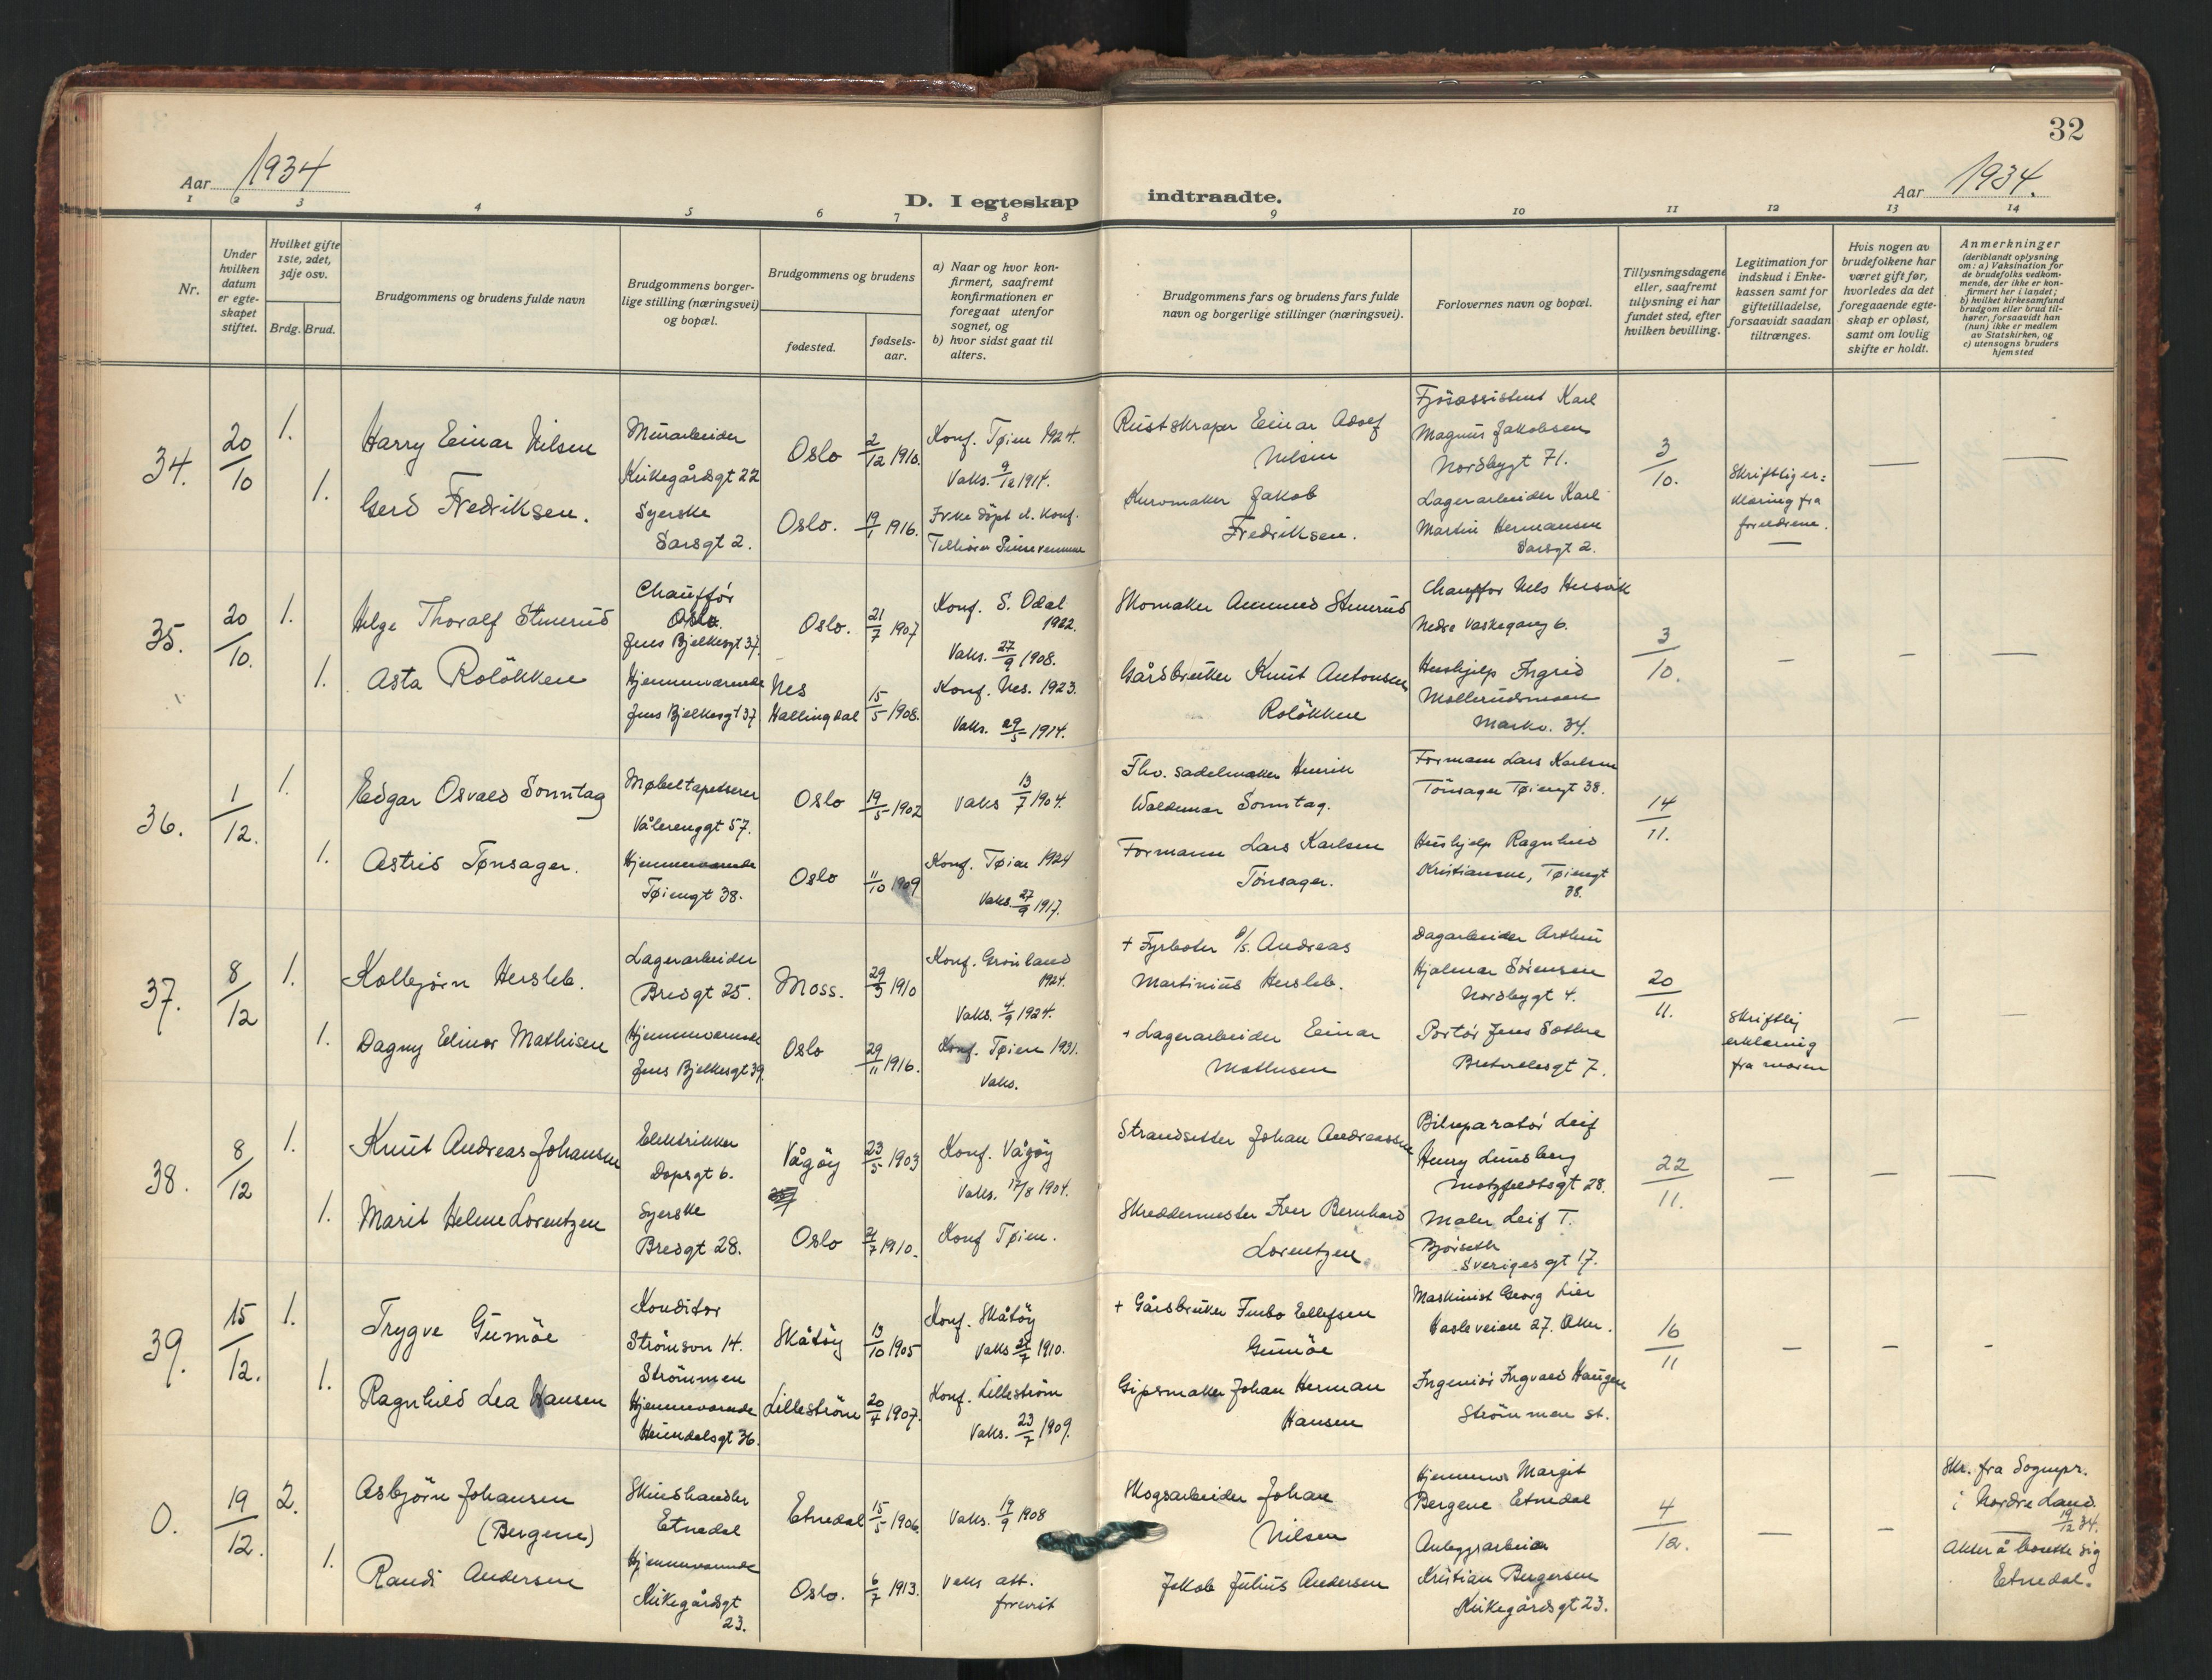 32
Aar 1934
Aar 1934.
D. I egteskap indtraadte.
1 2 3 4 5 6 7 8 9 10 11 12 13 14
Nr.
Under hvilken datum er egte-skapet stiftet.
Hvilket gifte 1ste, 2det, 3dje osv.
Brdg. Brud.
Brudgommens og brudens fulde navn
Brudgommens borger-lige stilling (næringsvei) og bopæl.
Brudgommens og brudens
fødested.
fødsels-aar.
a) Naar og hvor kon-firmert, saafremt konfirmationen er foregaat utenfor sognet, og
b) hvor sidst gaat til alters.
Brudgommens fars og brudens fars fulde navn og borgerlige stillinger (næringsvei).
Forlovernes navn og bopæl.
Tillysningsdagene eller, saafremt tillysning ei har fundet sted, efter hvilken bevilling.
Legitimation for indskud i Enke-kassen samt for giftetilladelse, forsaavidt saadan tiltrænges.
Hvis nogen av brudefolkene har været gift før, hvorledes da det foregaaende egte-skap er opløst, samt om lovlig skifte er holdt.
Anmerkninger
(deriblandt oplysning om: a) Vaksination for de brudefolks vedkom-mende, der ikke er kon-firmert her i landet; b) hvilket kirkesamfund brudgom eller brud til-hører, forsaavidt han (hun) ikke er medlem av Statskirken, og c) utensogns bruders hjemsted
34.
20/10
1.
Harry Einar Nilsen
Murarbeider
Kirkegårdsgt 22
Oslo
2/12 1910.
Konf. Tøien 1924.
Vaks. 9/12 1914.
Rustskraper Einar Adolf
Nilsen
Fjøsassistent Karl
Magnus Jakobsen
Nordbygt 71.
3/10.
Skriftlig er=
klæring fra
foreldrene.
1.
Gerd Fredriksen.
Syerske
Sarsgt 2.
Oslo.
19/1 1916.
Ikke døpt el. konf.
Tilhører Pinsevennene
Kurvmaker Jakob
Fredriksen.
Lagerarbeider Karl
Martin Hermansen
Sarsgt 2.
35.
20/10.
1.
Helge Thoralf Stenerud
Chauffør
Oslo.
Jens Bjelkesgt 37.
Oslo.
21/7 1907
Konf. S. Odal
1922.
Vaks. 27/9 1908.
Skomaker Amund Stenerud
Chauffør Nels Hersvik
Nedre Vaskegang 6.
3/10.
1.
Asta Roløkken
Hjemmeværende
Jens Bjelkesgt 37
Nes
Hallingdal
15/5 1908.
Konf. Nes. 1923.
Vaks. 29/5 1914.
Gårdbruker Knut Antonsen
Roløkken
Hushjelp Ingrid
Mollerudmoen
Markv. 34.
36.
1/12.
1.
Edgar Osvald Sonntag
Møbeltapetserer
Vålerenggt 57.
Oslo
19/5 1902
Vaks 13/7 1904.
Fhv. sadelmaker Henrik
Waldemar Sonntag.
Formann Lars Karlsen
Tønsager Tøiengt 38.
14/11.
1.
Astrid Tønsager.
Hjemmeværende
Tøiengt 38.
Oslo
11/10 1909
Konf. Tøien 1924
Vaks. 27/9 1917.
Formann Lars Karlsen
Tønsager.
Hushjelp Ragnhild
Kristiansen, Tøiengt
38.
37.
8/12
1.
Kolbjørn Hersleb.
Lagerarbeider
Bredgt 25.
Moss.
29/3 1910
Konf. Grønland
1924.
Vaks. 4/9 1924.
+ Fyrbøter Andreas
Martinius Hersleb.
Dagarbeider Arthur
Hjalmar Sørensen
Nordbygt 4.
20/11.
Skriftlig
erklæring
fra moren
1.
Dagny Elinor Mathisen
Hjemmeværende
Jens Bjelkesgt 39.
Oslo
29/11 1916.
Konf. Tøien 1931.
Vaks.
+ Lagerarbeider Einar
Mathisen
Portør Jens Sæthre
7.
38.
8/12
1.
Knut Andreas Johansen
Elektrikker
Dopsgt 6.
Vågøy
23/5 1903
Konf. Vågøy
Vaks. 17/8 1904.
Strandsitter Johan Andreassen
Bilreparatør Leif
Henry Lundsberg
Motzfeldtsgt 28.
22/11.
1.
Marit Helene Lorentzen
Syerske
Bredgt 28.
Oslo
4/7 1910.
Konf Tøien.
Skreddermester Iver Bernhard
Lorentzen
Maler Leif T.
Bjørseth
Sverigesgt 17.
39.
15/12.
1.
Trygve Gumøe
Konditor
Strømsvn 14.
Strømmen
Skåtøy
13/10 1905
Konf. Skåtøy
Vaks 27/7 1910.
+ Gårdbruker Ellefsen
Gumøe
Maskinist Georg Lier
Hasleveien 27. Aker.
16/11
1.
Ragnhild Lea Hansen
Hjemmeværende
Heimdalsgt 36.
Lillestrøm
20/4 1907.
Konf. Lillestrøm
Vaks. 23/7 1909.
Gipsmaker Johan Herman
Hansen
Ingeniør Ingvald Haugen
Strømmen st.
0.
19/12.
2.
Asbjørn Johansen
(Bergene)
Skinshandler
Etnedal
Etnedal
15/5 1906
Vaks. 19/9 1908
Skogsarbeider Johan
Nilsen
Hjemmev Margit
Bergene Etnedal
4/12.
Skr. fra Sognepr.
i Nordre Land.
19/12 34.
Akter å bosette sig
Etnedal.
1.
Randi Andersen
Hjemmeværende
Kirkegårdsgt
23.
Oslo.
6/7 1913.
Vaks att.
forevist
Jakob Julius Andersen
Anleggsarbeider
Kristian Bergersen
Kirkegårdsgt 23.